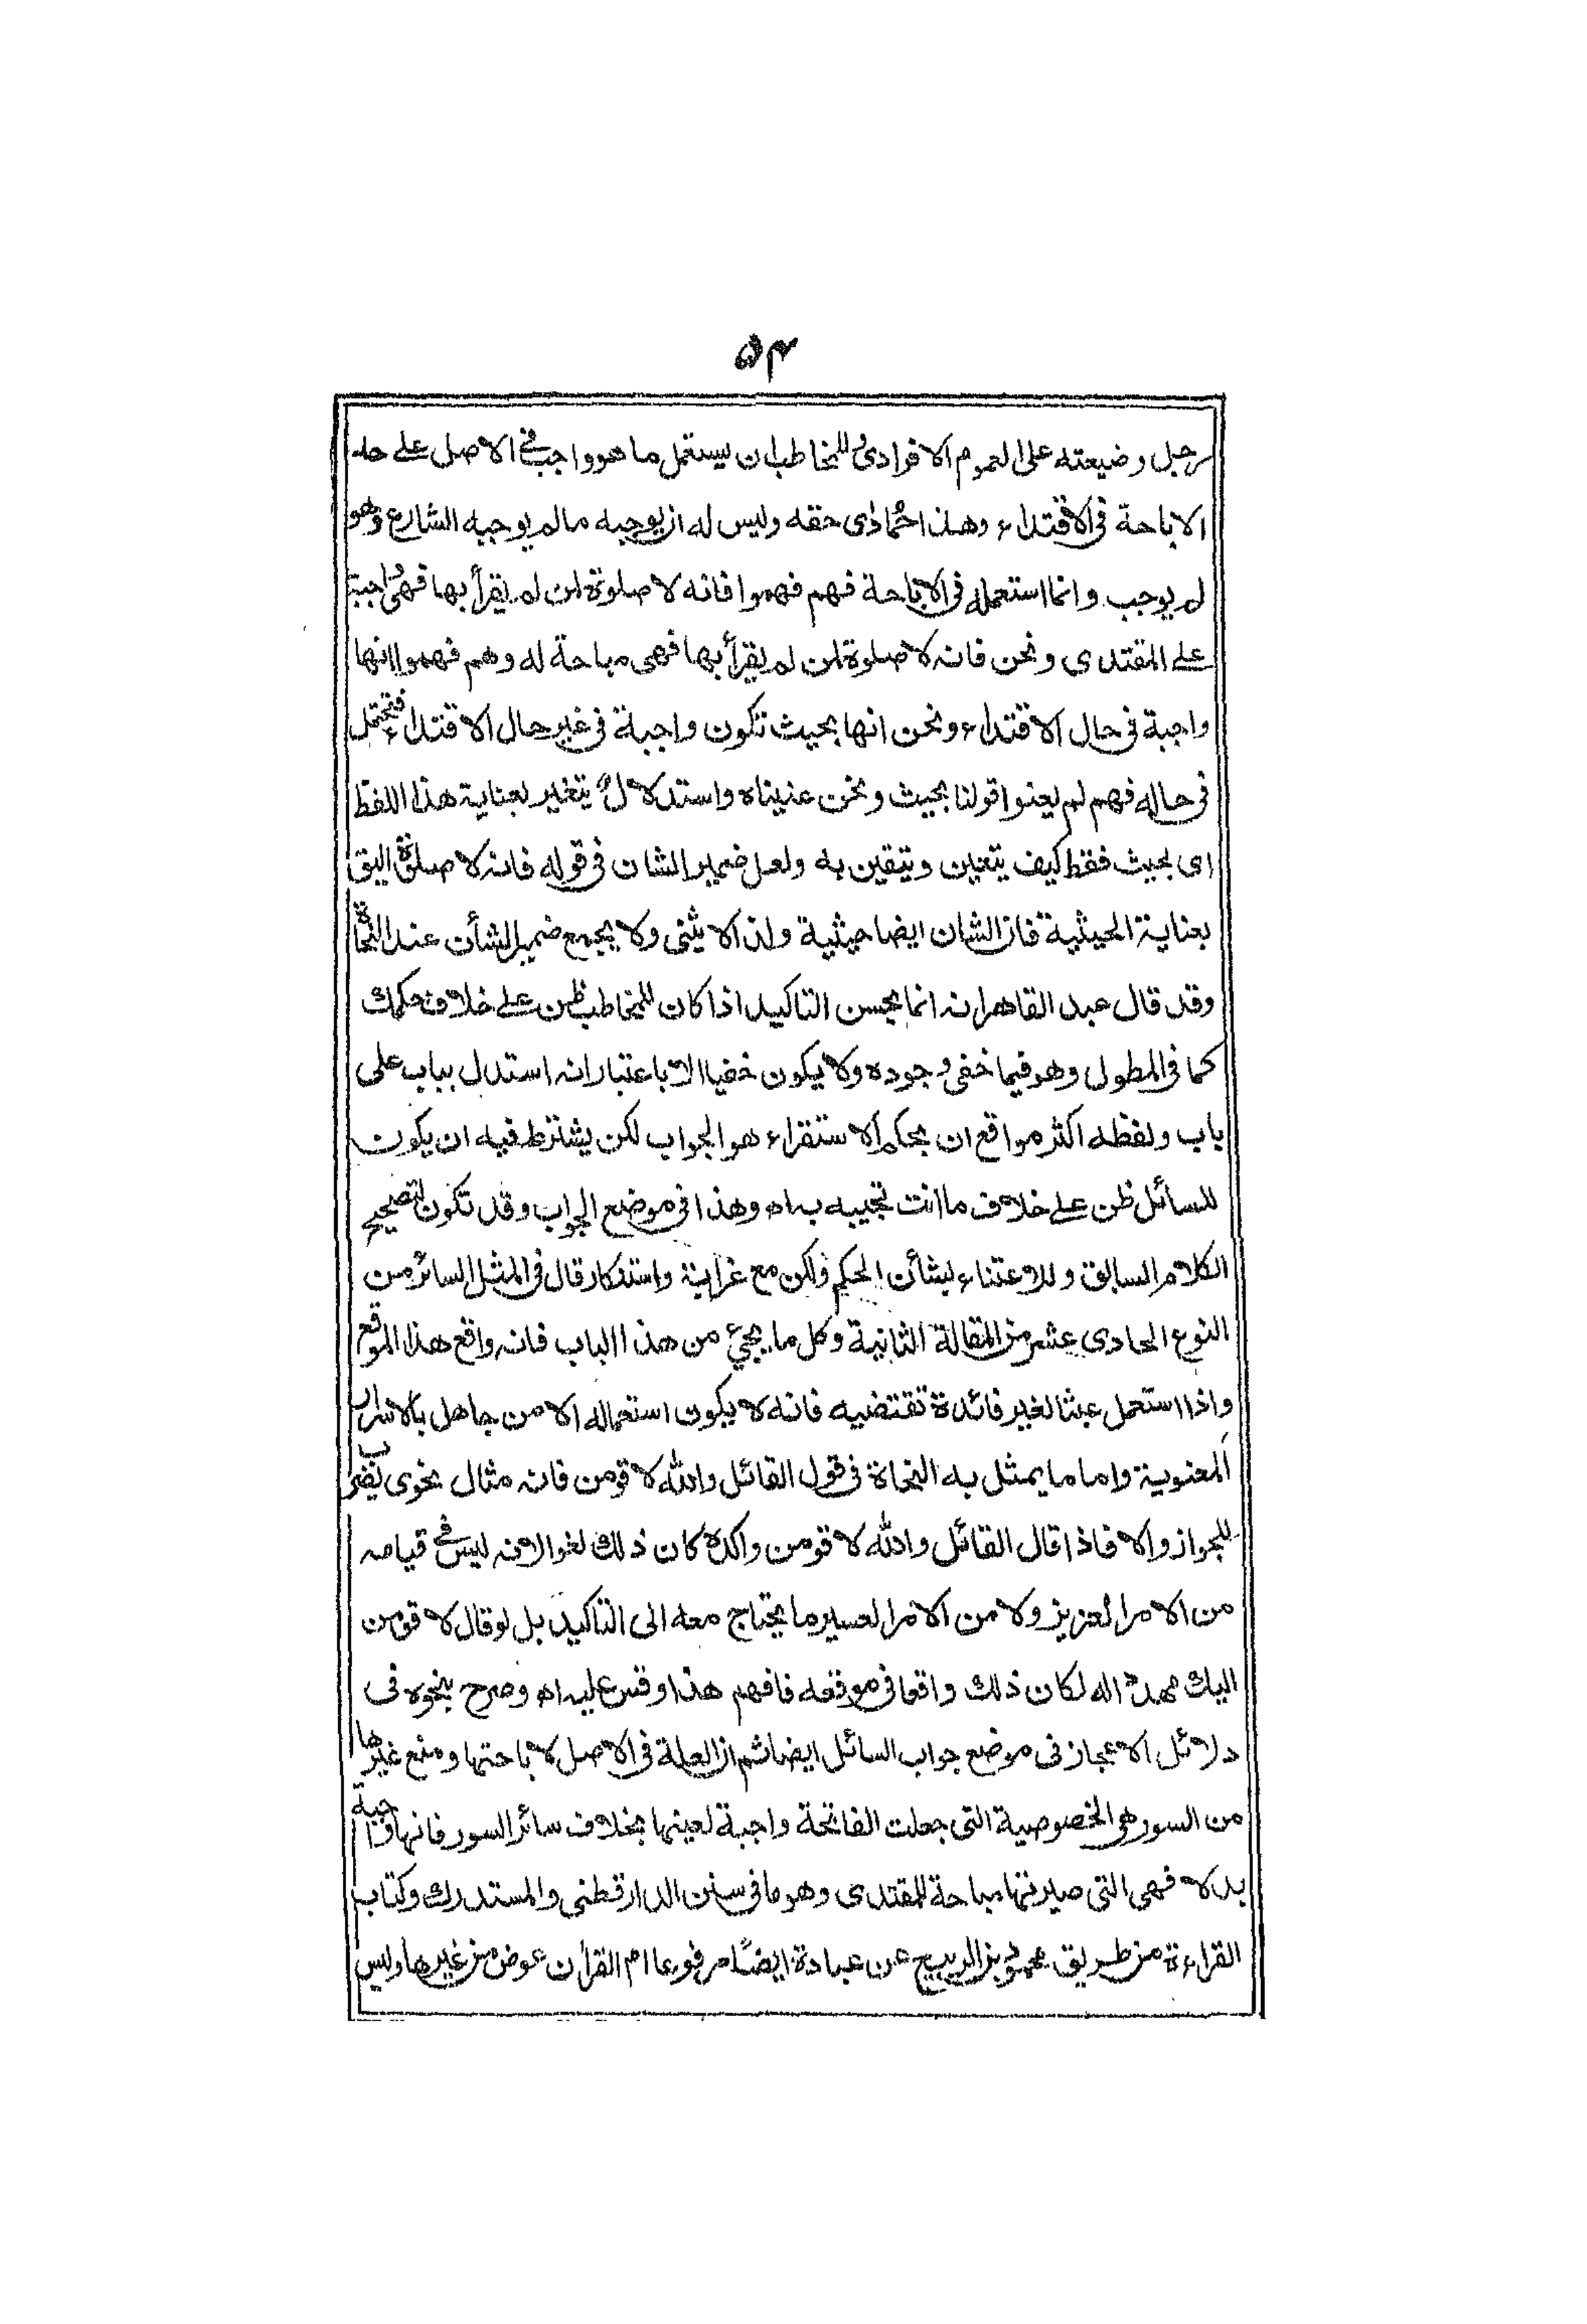 ٥٤
رجل وضيعته على العموم الافرادى وللمخاطب ان يستعمل ما هو واجب فى الاصل على حد
الاباحة فى الاقتداء وهذا احماذى حقه وليس له ان يوجبه مالم يوجبه الشارع وهو
لم يوجب وانما استعمله فى الاباحة فهم فهموا فانه لا صلوة لمن لم يقرأ بها فهى واجبة
على المقتدى ونحن فانه لا صلوة لمن لم يقرأ بها فهى مباحة له وهم فهموا انها
واجبة فى حال الاقتداء ونحن انها بحيث تكون واجبة فى غير حال الاقتداء فتحتمل
فى حاله فهم لم يعنوا قولنا بحيث ونحن عنيناه واستدلال يتغير بعناية هذا اللفظ
اى بحيث فقط كيف يتعين ويتيقن به ولعل ضمير الشان فى قوله فانه لا صلوة اليق
بعناية الحيثية فان الشان ايضا حيثية ولذا لا يثنى ولا يجمع ضمير الشأن عند النحاة
وقد قال عبد القاهر انه انما يحسن التاكيد اذا كان للمخاطب ظن على خلاف حكمك
كما فى المطول وهو فيما خفى وجوده ولا يكون خفيا الا باعتبار انه استدل بباب على
باب ولفظه اكثر مواقع ان بحكم الاستقراء هو الجواب لكن يشترط فيه ان يكون
للسائل ظن على خلاف ما انت تجيبه به اه وهذا فى موضع الجواب وقد تكون لتصحيح
الكلام السابق وللاعتناء بشأن الحكم ولكن مع غرابة واستنكار قال فى المثل السائر من
النوع الحادى عشر من المقالة الثانية وكل ما يجئ من هذا الباب فانه واقع هذا الموقع
واذا استعمل عبثا لغير فائدة تقتضيه فانه لا يكون استعماله الا من جاهل بالاسرار
المعنوية واما ما يمثل به النحاة فى قول القائل والله لاقومن فانه مثال نحوى يضرب
للجواز والا فاذا قال القائل والله لاقومن واكده كان ذلك لغوا لانه ليس فى قيامه
من الامر العزيز ولا من الامر العسير ما يحتاج معه الى التاكيد بل لو قال لاقومن
اليك مهددا له لكان ذلك واقعا فى موقعه فافهم هذا وقس عليه اه وصرح بنحوه فى
دلائل الاعجاز فى موضع جواب السائل ايضا ثم ان العلة فى الاصل لاباحتها ومنع غيرها
من السور هى الخصوصية التى جعلت الفاتحة واجبة لعينها بخلاف سائر السور فانها واجبة
بدلا فهى التى صيرتها مباحة للمقتدى وهو ما فى سنن الدارقطنى والمستدرك وكتاب
القراءة من طريق محمود بن الربيع عن عبادة ايضًا مرفوعا ام القرأن عوض من غيرها وليس